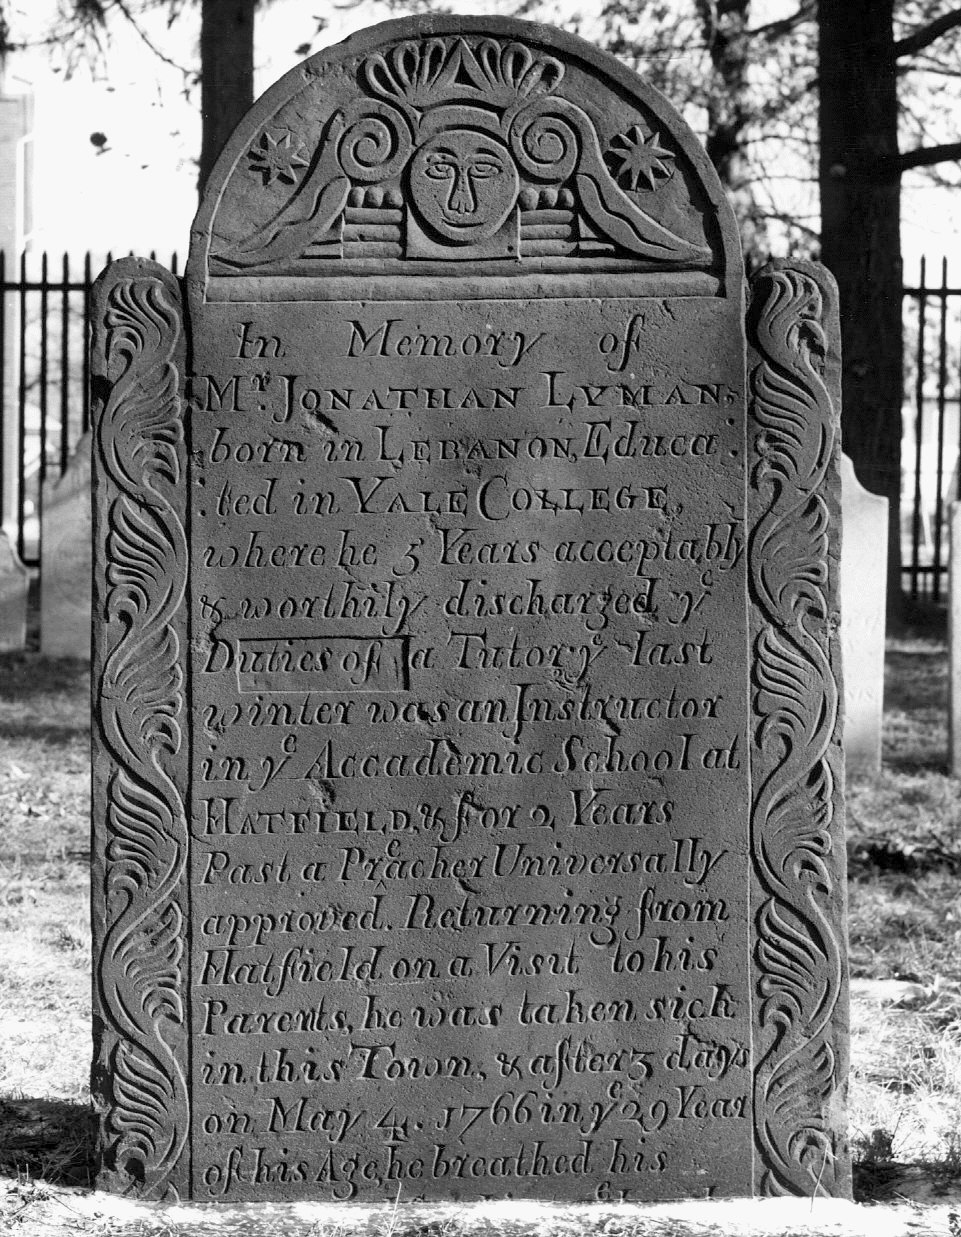 In Memory of
Mr. JONATHAN LYMAN.
born in LEBANON, Educa
ted in YALE COLLEGE
where he 3 Years acceptably
& worthily discharged ye
Duties of a Tutor, ye last
winter was an Instructor
in ye Accademic School at
HATFIELD, & for 2 Years
Past a Preacher Universally
approved. Returning from
Hatfield, on a Visit, to his
Parents, he was taken sick
in this Town, & after 3 days
on May 4. 1766 in ye 29 Year
of his Age, he breathed his